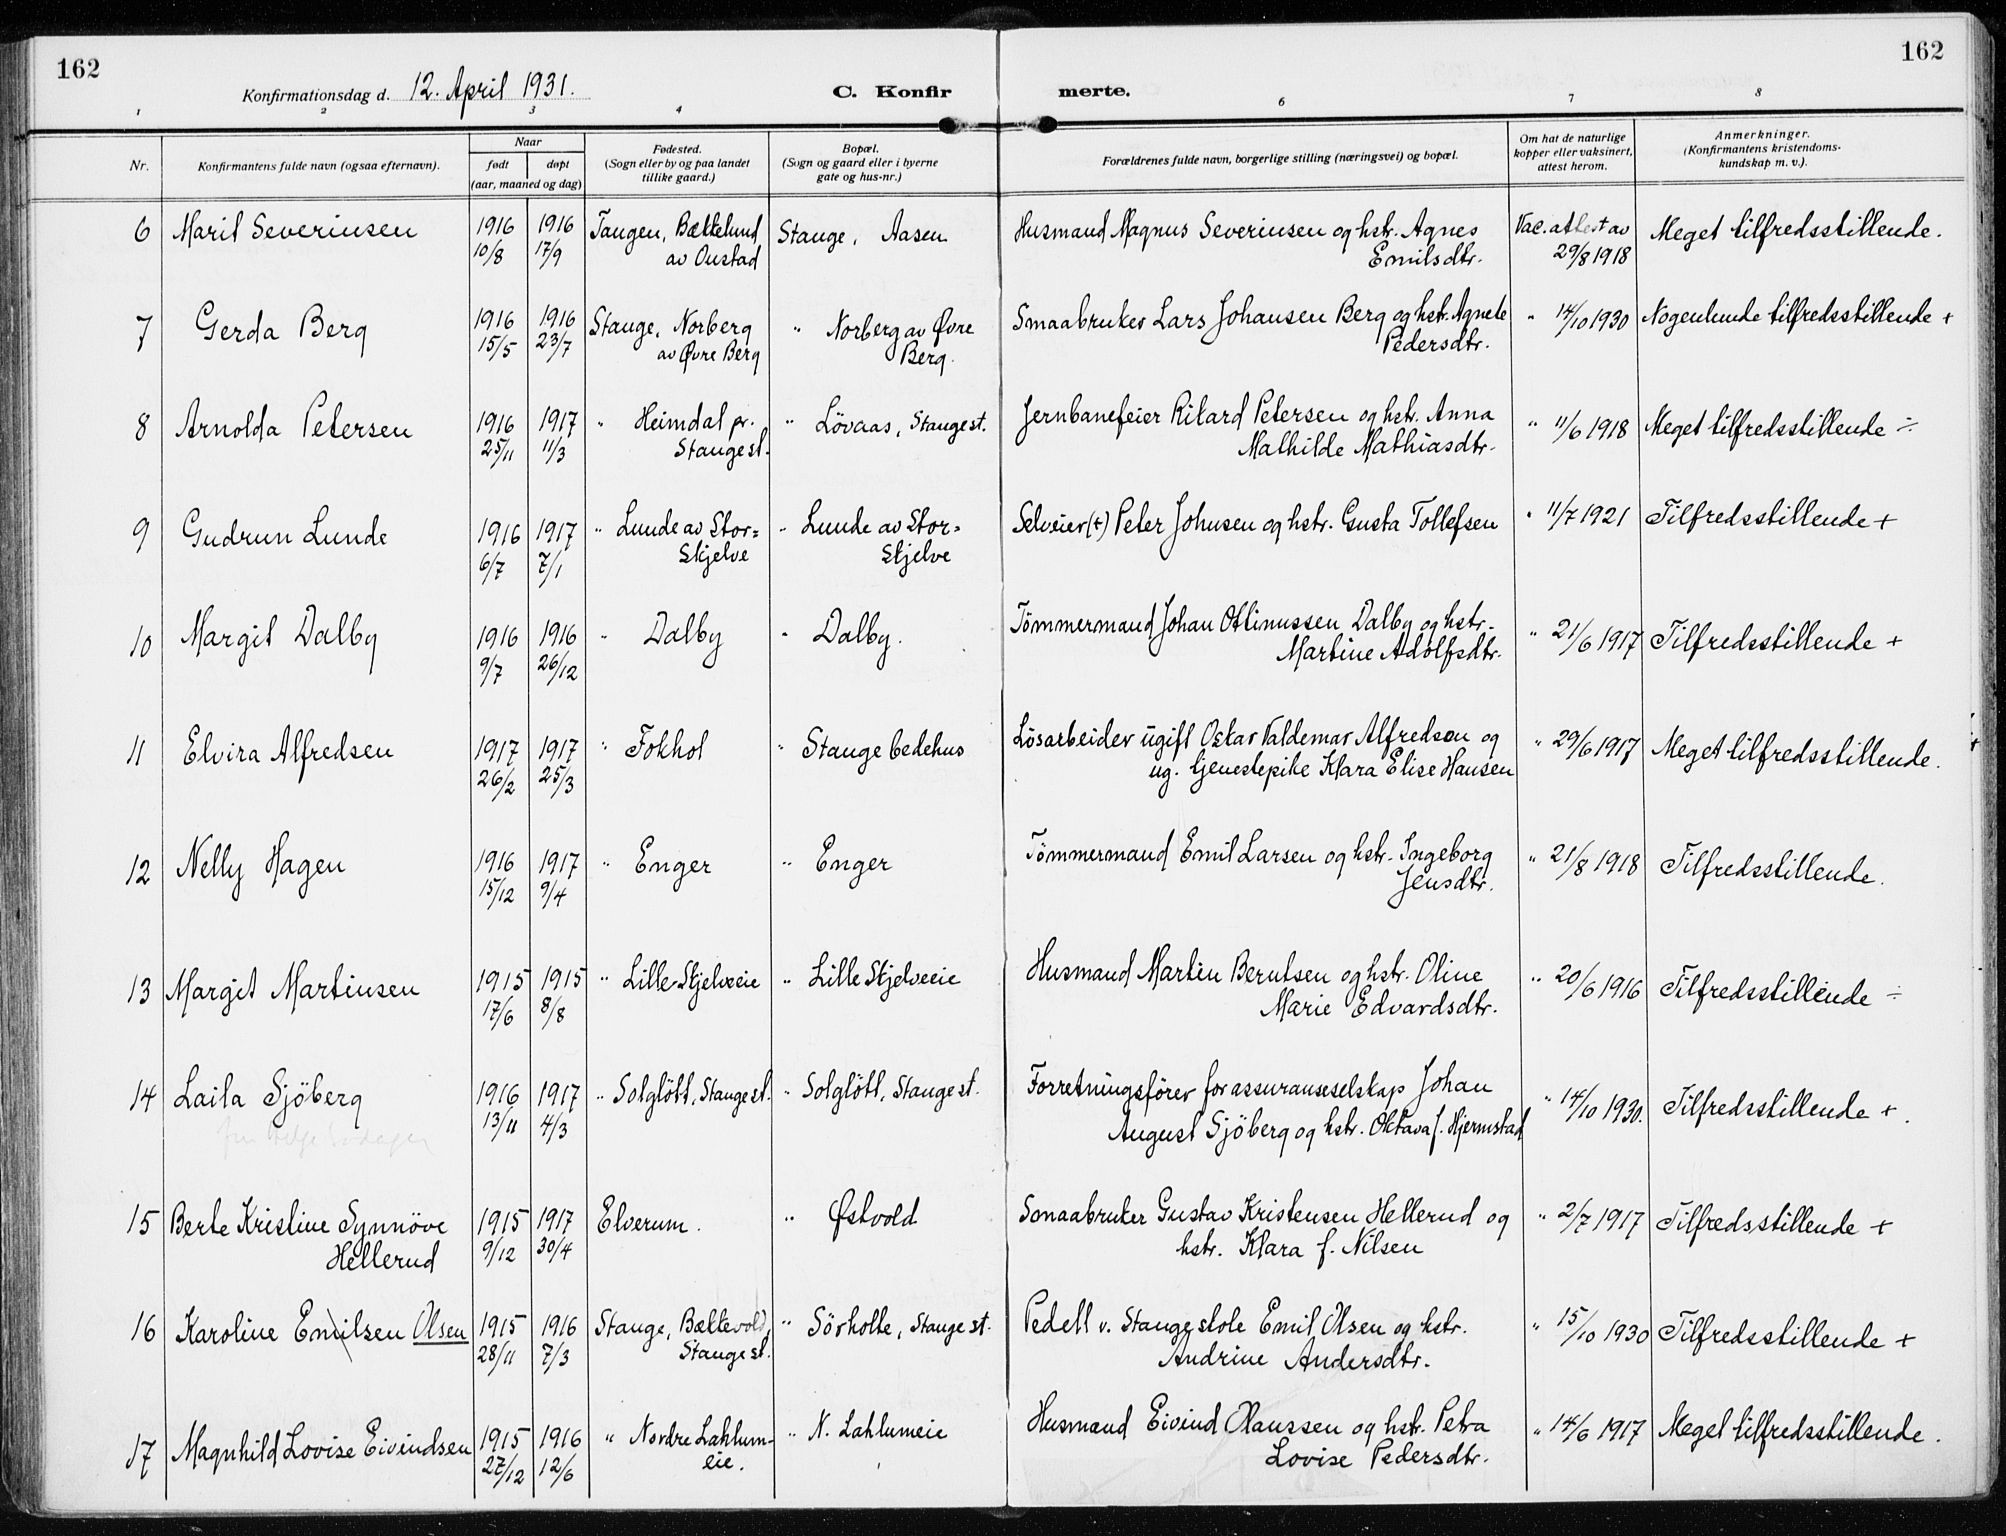 162
162
Konfirmationsdag d. 12. April 1931.
C. Konfir
merte.
1 2 3 4 6 7 8
Nr.
Konfirmantens fulde navn (ogsaa efternavn).
Naar
født døpt
(aar, maaned og dag)
Fødested.
(Sogn eller by og paa landet
tillike gaard.)
Bopæl.
(Sogn og gaard eller i byerne
gate og hus-nr.)
Forældrenes fulde navn, borgerlige stilling (næringsvei) og bopæl.
Om hat de naturlige
kopper eller vaksinert,
attest herom.
Anmerkninger.
(Konfirmantens kristendoms-
kundskap m. v.).
6 Marit Severinsen 1916 1916 Tangen, Bækkelund Stange, Aasen Husmand Magnus Severinsen og hstr. Agnes Vac. attest av Meget tilfredsstillende.
10/8 17/9 av Oustad Emilsdtr. 29/8 1918
7 Gerda Berg 1916 1916 Stange, Norberg " Norberg av Øvre Smaabruker Lars Johansen Berg og hstr. Agnete " 14/10 1930 Nogenlunde tilfredsstillende +
15/5 23/7 av Øvre Berg Berg. Pedersdtr.
8 Arnolda Petersen 1916 1917 " Heimdal pr. " Lövaas, Stange st. Jernbanefeier Rikard Petersen og hstr. Anna " 11/6 1918 Meget tilfredsstillende ÷
25/11 11/3 Stange st. Mathilde Mathiasdtr.
9 Gudrun Lunde 1916 1917 " Lunde av Stor= " Lunde av Stor= Selveier (+) Peter Johnsen og hstr. Gusta Tollefsen " 11/7 1921 Tilfredsstillende +
6/7 7/1 Skjelve Skjelve
10 Margit Dalby 1916 1916 " Dalby " Dalby. Tömmermand Johan Ottinussen Dalby og hstr. " 21/6 1917 Tilfredsstillende +
9/7 26/12 Martine Adolfsdtr.
11 Elvira Alfredsen 1917 1917 " Fokhol " Stange bedehus Lösarbeider ugift Oskar Valdemar Alfredsen og " 29/6 1917 Meget tilfredsstillende.
26/2 25/3 ug. tjenestepike Klara Elise Hansen
12 Nelly Hagen 1916 1917 " Enger " Enger Tömmermand Emil Larsen og hstr. Ingeborg " 21/8 1918 Tilfredsstillende.
15/12 9/4 Jensdtr.
13 Margit Martinsen 1915 1915 " Lille-Skjelveeie " Lille Skjelveeie Husmand Martin Berntsen og hstr. Oline " 20/6 1916 Tilfredsstillende ÷
17/6 8/8 Marie Edvardsdtr.
14 Laila Sjöberg 1916 1917 " Solglött, Stange st. " Solglött, Stange st. Forretningsförer for assuranseselskap Johan " 14/10 1930. Tilfredsstillende +.
13/11 4/3 August Sjöberg og hstr. Oktava f. Hjermstad
15 Berte Kristine Synnöve 1915 1917 Elverum. " Østvold Smaabruker Gustav Kristensen Hellerud og " 2/7 1917 Tilfredsstillende +
Hellerud 9/12 30/4 hstr. Klara f. Nilsen
16 Karoline Emilsen Olsen 1915 1916 Stange, Bækkevold, " Sörholte, Stange st. Pedell v. Stange skole Emil Olsen og hstr. " 15/10 1930 Tilfredsstillende +
28/11 7/3 Stange st. Andrine Andersdtr.
17 Magnhild Lovise Eivindsen 1915 1916 " Nordre Lahlum- " N. Lahlumeie Husmand Eivind Olaussen og hstr. Petra " 14/6 1917 Meget tilfredsstillende.
27/12 12/6 eie. Lovise Pedersdtr.